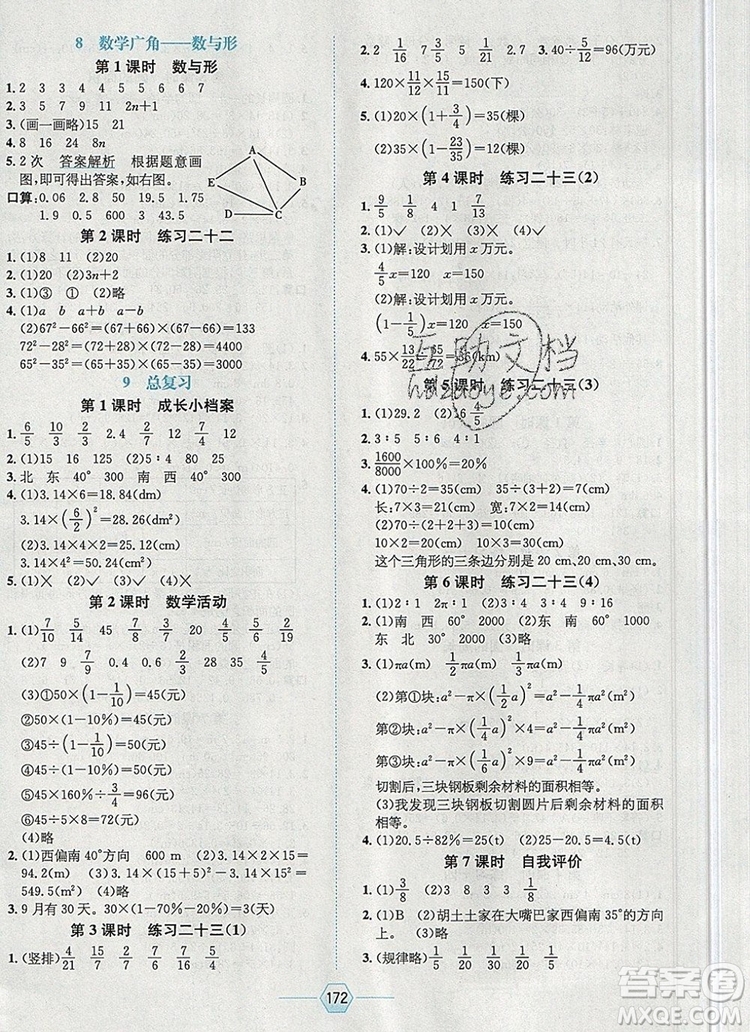 8 数学广角——数与形
第1课时 数与形
1.2 3 4 5 5 6 6 7
2.3 5 7 9 11 2n+1
3.(画一画略)15 21
4.8 16 24 8n
5.2次 答案解析 根据题意画
图,即可得出答案,如右图。
A
E B
D C
口算:0.06 2.8 50 19.5 1.75
1.9 0.5 600 3 43.5
第2课时 练习二十二
1.(1)8 11 (2)20
2.(1)20 (2)3n+2
3.(1)③ ① (2)略
4.(1)a b a+b a-b
(2)67²-66²=(67+66)×(67-66)=133
72²-28²=(72+28)×(72-28)=4400
65²-35²=(65+35)×(65-35)=3000
9 总复习
第1课时 成长小档案
1. 6/5 3/10 2/3 4/9 2/7 2/15 4/5 1/4
2.(1)15 16 125 (2)120
3.北 东 40° 300 南 西 40° 300
4.(1)3.14×6=18.84(dm)
3.14×(6/2)²=28.26(dm²)
(2)3.14×4×2=25.12(cm)
3.14×4²=50.24(cm²)
5.(1)✓ (2)✓ (3)✓ (4)✓
第2课时 数学活动
1.(1)7/10 5/14 45 2/5 9/14 4/27 2/21 2/9
(2)0.9 7 7/9 0.4 0.6 2/3 3/4
(3)①50×(1-1/10)=45(元)
②50×(1-1/10)=45(元)
③45÷(1-1/10)=50(元)
④45÷5×6=54(元)
⑤45×160%×3/4=96(元)
⑥45÷5×8=72(元)
(4)略
2.(1)西偏南40°方向 600m (2)3.14×15×2=
94.2(m) (3)3.14×(15+5)²-3.14×15²=
549.5(m²)
3.9月有30天。30×(1-90%)=3(天)
第3课时 练习二十三(1)
1.(竖排) 4/21 7/15 2/27 7/20 7/5 5/4
2.2 1/16 9 7/15 7 2/3 3.40÷5/12=96(万元)
4.120×11/12×15/11=150(下)
5.(1)20×(1+3/4)=35(棵)
(2)35×(1-23/35)=12(棵)
第4课时 练习二十三(2)
1. 9/5 1/2 1/8 4 1 7/13
2.(1)✓ (2)× (3)× (4)✓
3.(1)解:设计划用x万元。
4/5 x=120 x=150
(2)解:设计划用x万元。
(1-1/5)x=120 x=150
互助文档
hdzuoye.com
第5课时 练习二十三(3)
1.(1)29.2 (2)6 4/5
2.3:5 1:6 4:9
3. 1600/8000×100%=20%
4.(1)70÷2=35(cm) 35÷(3+2)=7(cm)
长:7×3=21(cm) 宽:7×2=14(cm)
(2)70÷(2+2+3)=10(cm)
10×2=20(cm) 10×3=30(cm)
这个三角形的三条边分别是20cm、20cm、30cm。
第6课时 练习二十三(4)
1.(1)2:1 (2)π:1 (3)2:3 4:9 (4)9:16
2.(1)南 西 60° 2000 (2)东 南 60° 2000
东 北 30° 2000 (3)略
3.(1)πa(m) 1/2πa(m) 1/3πa(m)
(2)第①块:a²-π×(1/2a)²=a²-1/4πa²(m²)
第②块:a²-π×(1/4a)²×4=a²-1/4πa²(m²)
第③块:a²-π×(1/6a)²×9=a²-1/4πa²(m²)
切割后,三块钢板剩余材料的面积相等。
(3)我发现三块钢板切割圆片后剩余材料的面积
相等。
4.(1)20.5÷82%=25(t) (2)25-20.5=4.5(t)
第7课时 自我评价
1.(1)3/8 (2)4 3 1/3 1/8
2.(1)B (2)胡土土家在大嘴巴家西偏南35°的方向
上。(3)略
3.(规律略) 1/2 3/4 7/8 15/16
172
答案圈
MXQE.COM